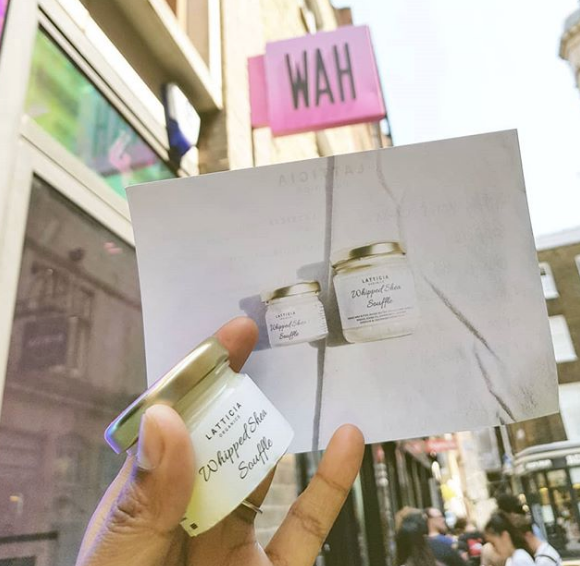 WAH
LATTICIA
LATTICIA
Whipped Shea
Souffle
LATTICIA
Whipped Shea
Souffle
LATTICIA
ORGANICS
Whipped Shea
Souffle